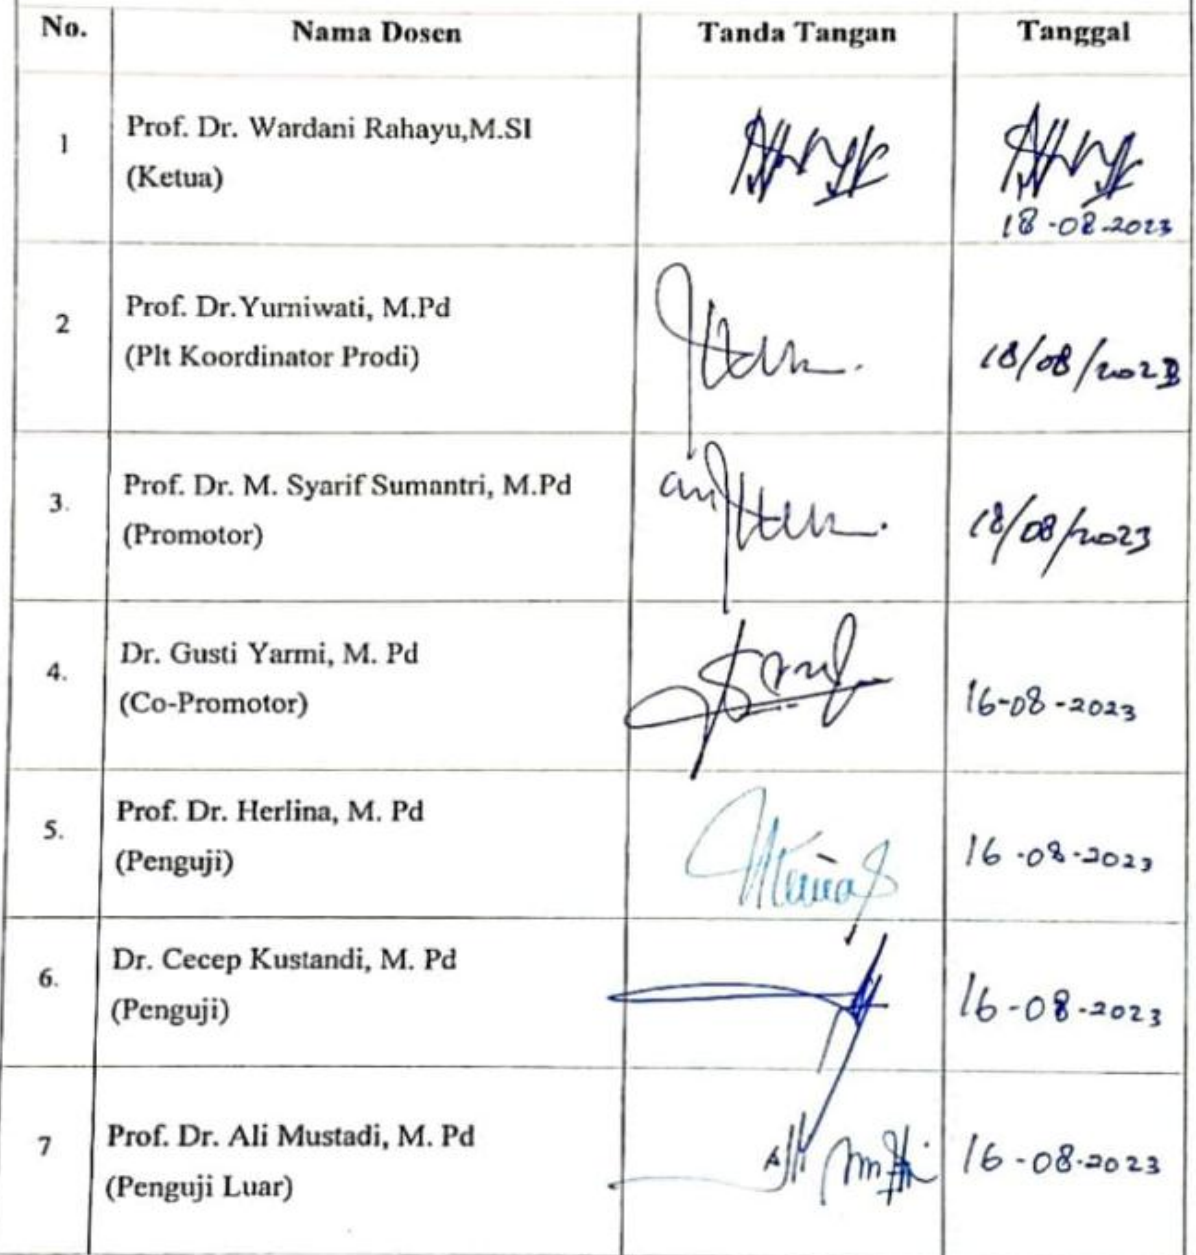 No. Nama Dosen Tanda Tangan Tanggal
1 Prof. Dr. Wardani Rahayu,M.SI
(Ketua)
18-08-2023
2 Prof. Dr.Yurniwati, M.Pd
(Plt Koordinator Prodi) 18/08/2023
3. Prof. Dr. M. Syarif Sumantri, M.Pd
(Promotor) an 18/08/2023
4. Dr. Gusti Yarmi, M. Pd
(Co-Promotor) 16-08-2023
5. Prof. Dr. Herlina, M. Pd
(Penguji) 16-08-2023
6. Dr. Cecep Kustandi, M. Pd
(Penguji) 16-08-2023
7 Prof. Dr. Ali Mustadi, M. Pd
(Penguji Luar) 16-08-2023